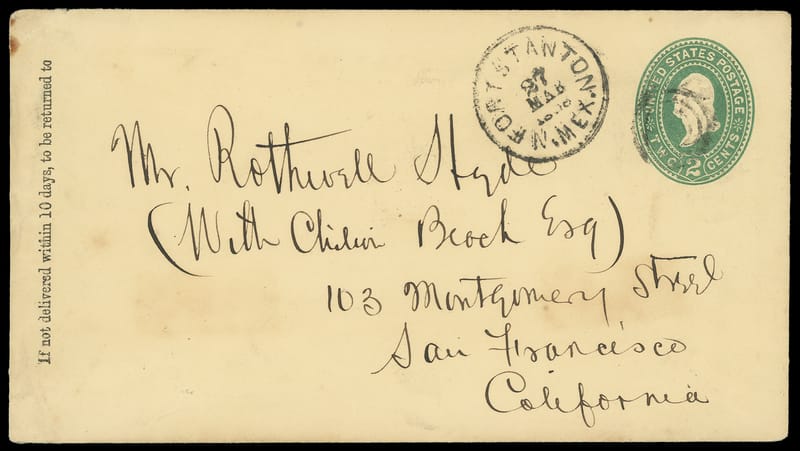 If not delivered within 10 days, to be returned to
FORT STANTON.
27
MAR
N. MEX.
UNITED STATES POSTAGE
TWO 2 CENTS
Mr. Rothwell Hyde
(With Chilion Beach Esq)
103 Montgomery Street
San Francisco
California